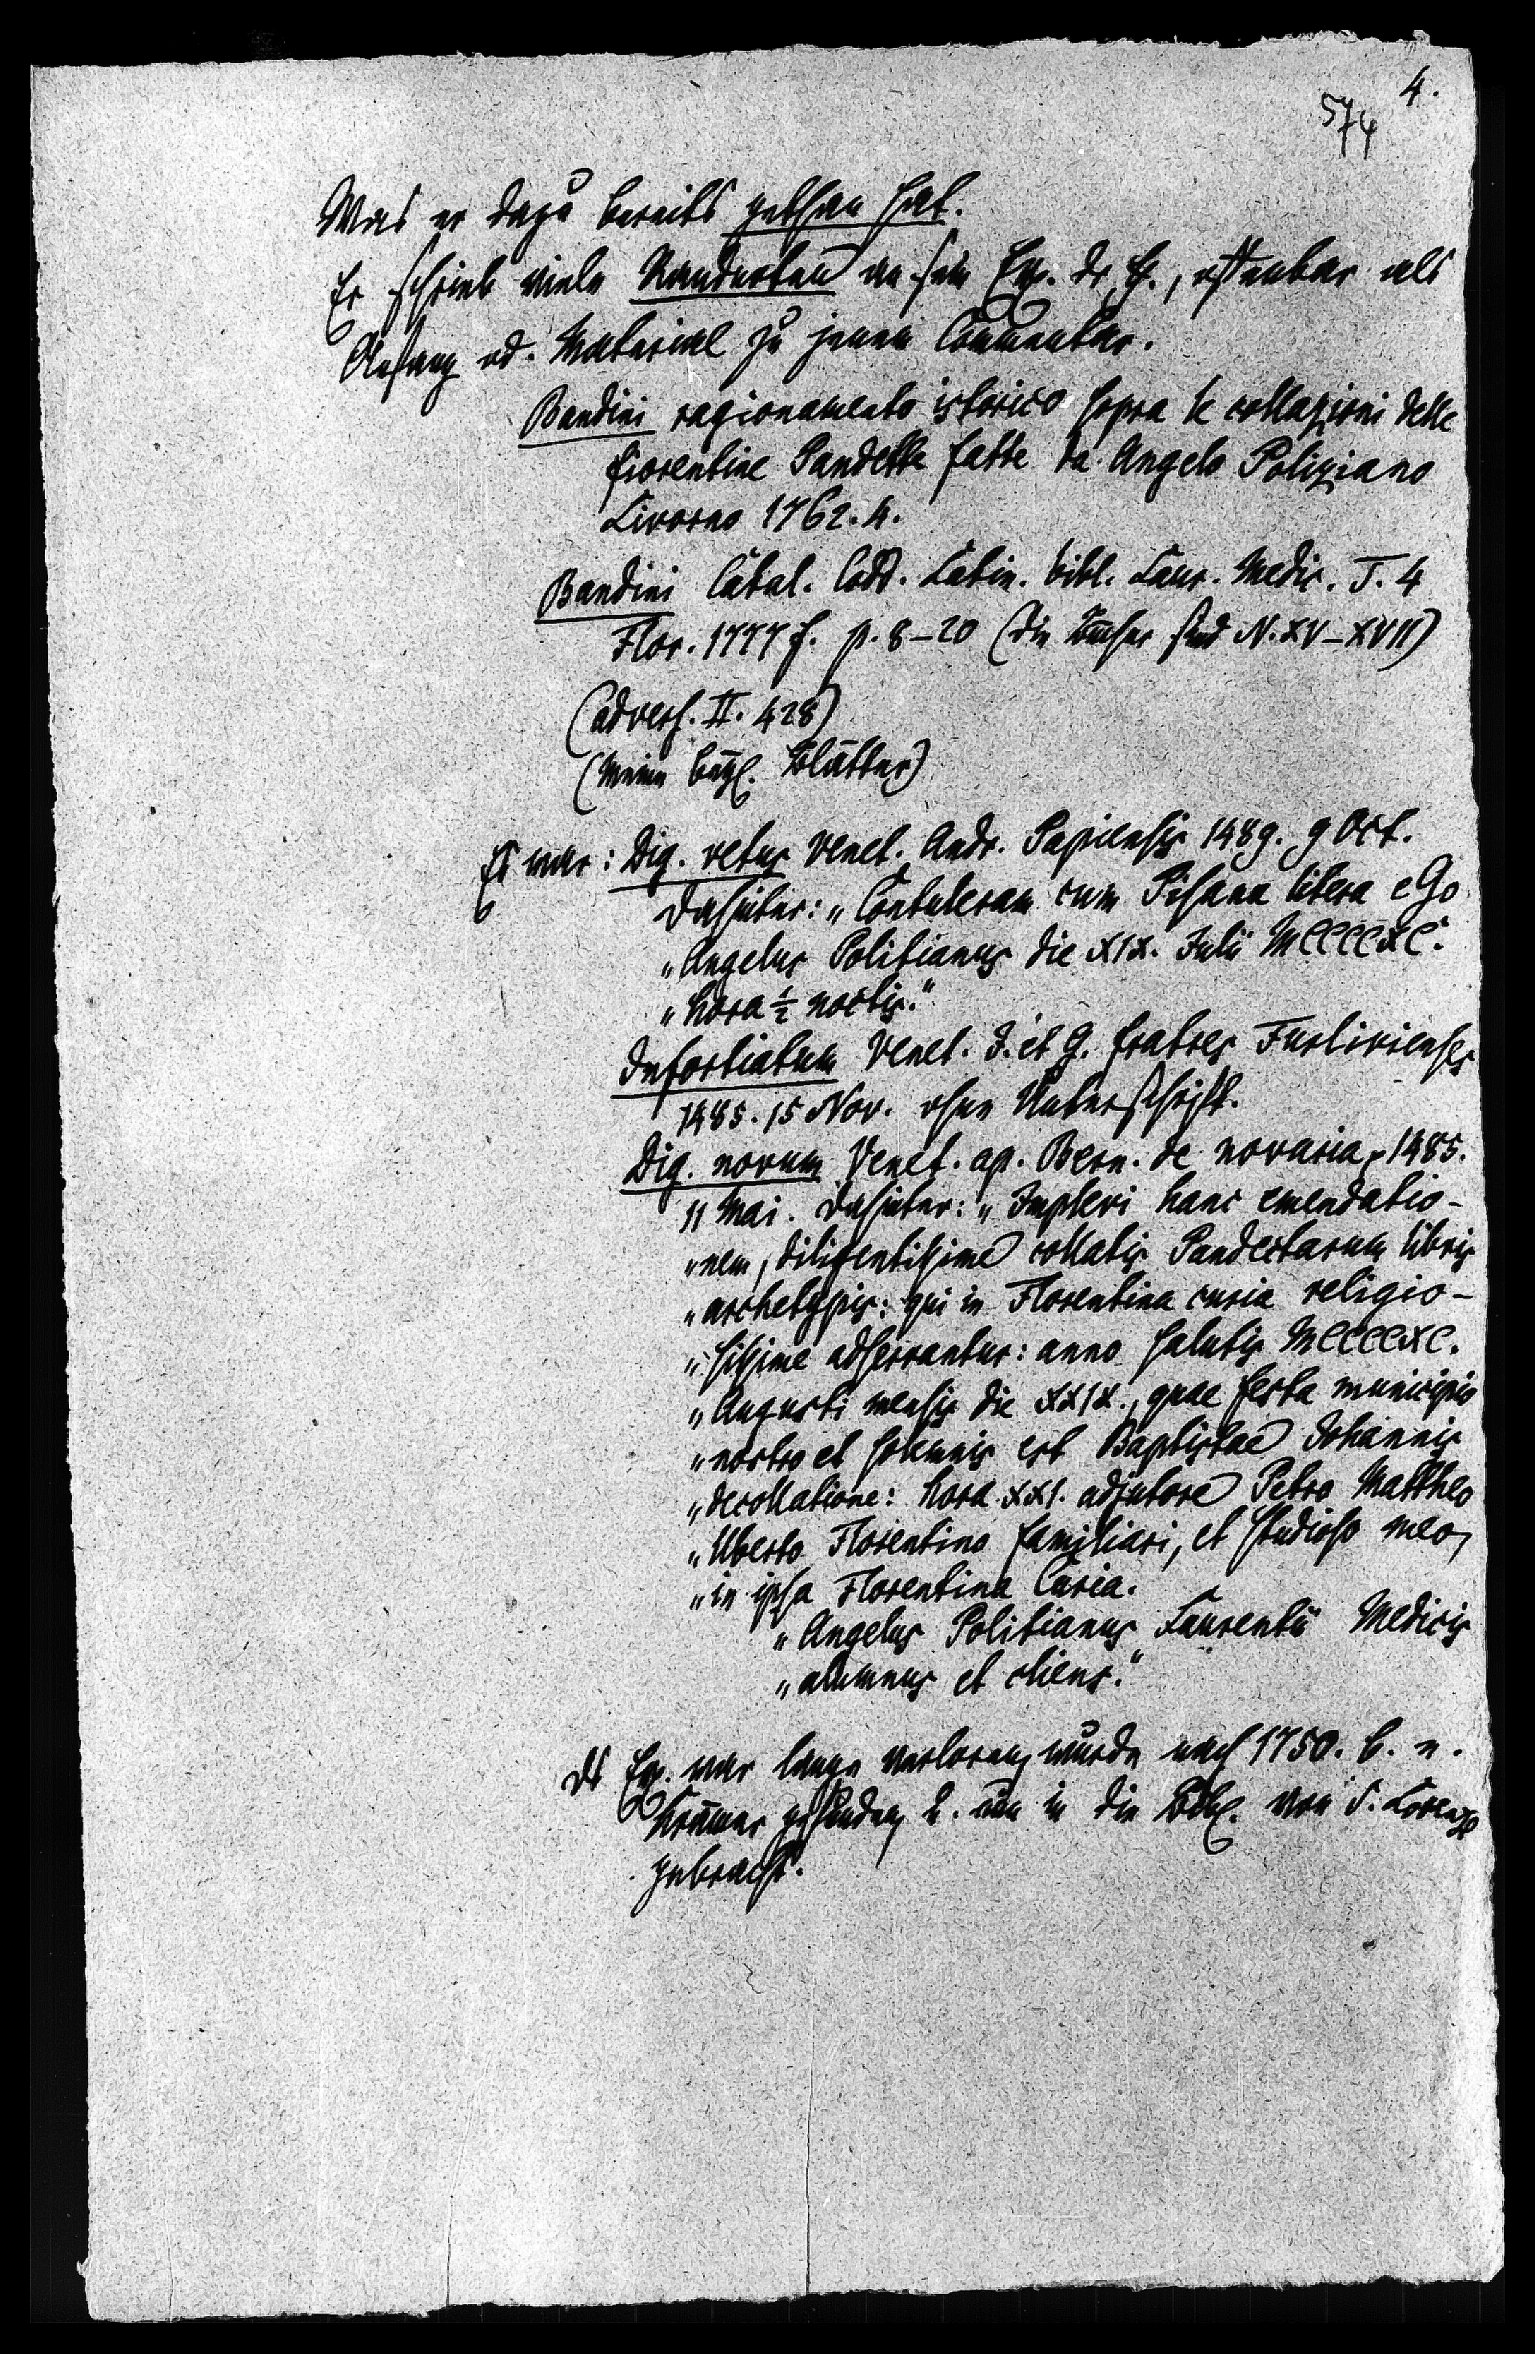 4.
574
Was er dazu bereits gethan hat.
Er schrieb viele Randnoten an sein Ex. dr. , offenbar als
Anfang od. Material zu jenem Commentar.
Bandini ragionamento istorico sopra le collazioni delle
fiorentine Pandette fatte da Angelo Poliziano
Livorno 1762. 4.
Bandini Catal. Codd. Latin. bibl. Laur. Medic. T. 4
Flor. 1777 f. p. 8–20 (die sind N. XV–XVII)
(advers. II. 428)
(Meine Blätter)
Es war: Dig. vetus Venet. Andr. Papiensis 1489. 9 Oct.
Dahinter: „Contuleram cum Pisana litera eGo
„Angelus Politianus die XIX. Julii MCCCCXC.
„hora ½ noctis."
Infortiatum Venet. J. et G. fratres Furlivienses
1485. 15 Nov. ohne Unterschrift.
Dig. novum Venet. ap. Bern. de novaria, 1485.
11 Mai. Dahinter: „Implevi hanc emendatio-
„nem, diligentissime collatis Pandectarum libris
„archetypis: qui in Florentina curia religio-
„sissime adservantur: anno salutis MCCCCXC.
„Augusti mensis die XXIX., quae festa municipio
„nostro et solemnis est Baptistae Johannis
„decollatione: hora XXI. adjutore Petro Mattheo
„Uberto Florentino familiari, et studioso meo,
„in ipsa Florentina Curia.
„Angelus Politianus Laurentii Medicis
„alumnus et cliens."
Ds Ex. war lange verloren, wurde nach 1750. b. e.
Krämer gefunden, u. nun in die Bibl. von S. Lorenzo
gebracht.